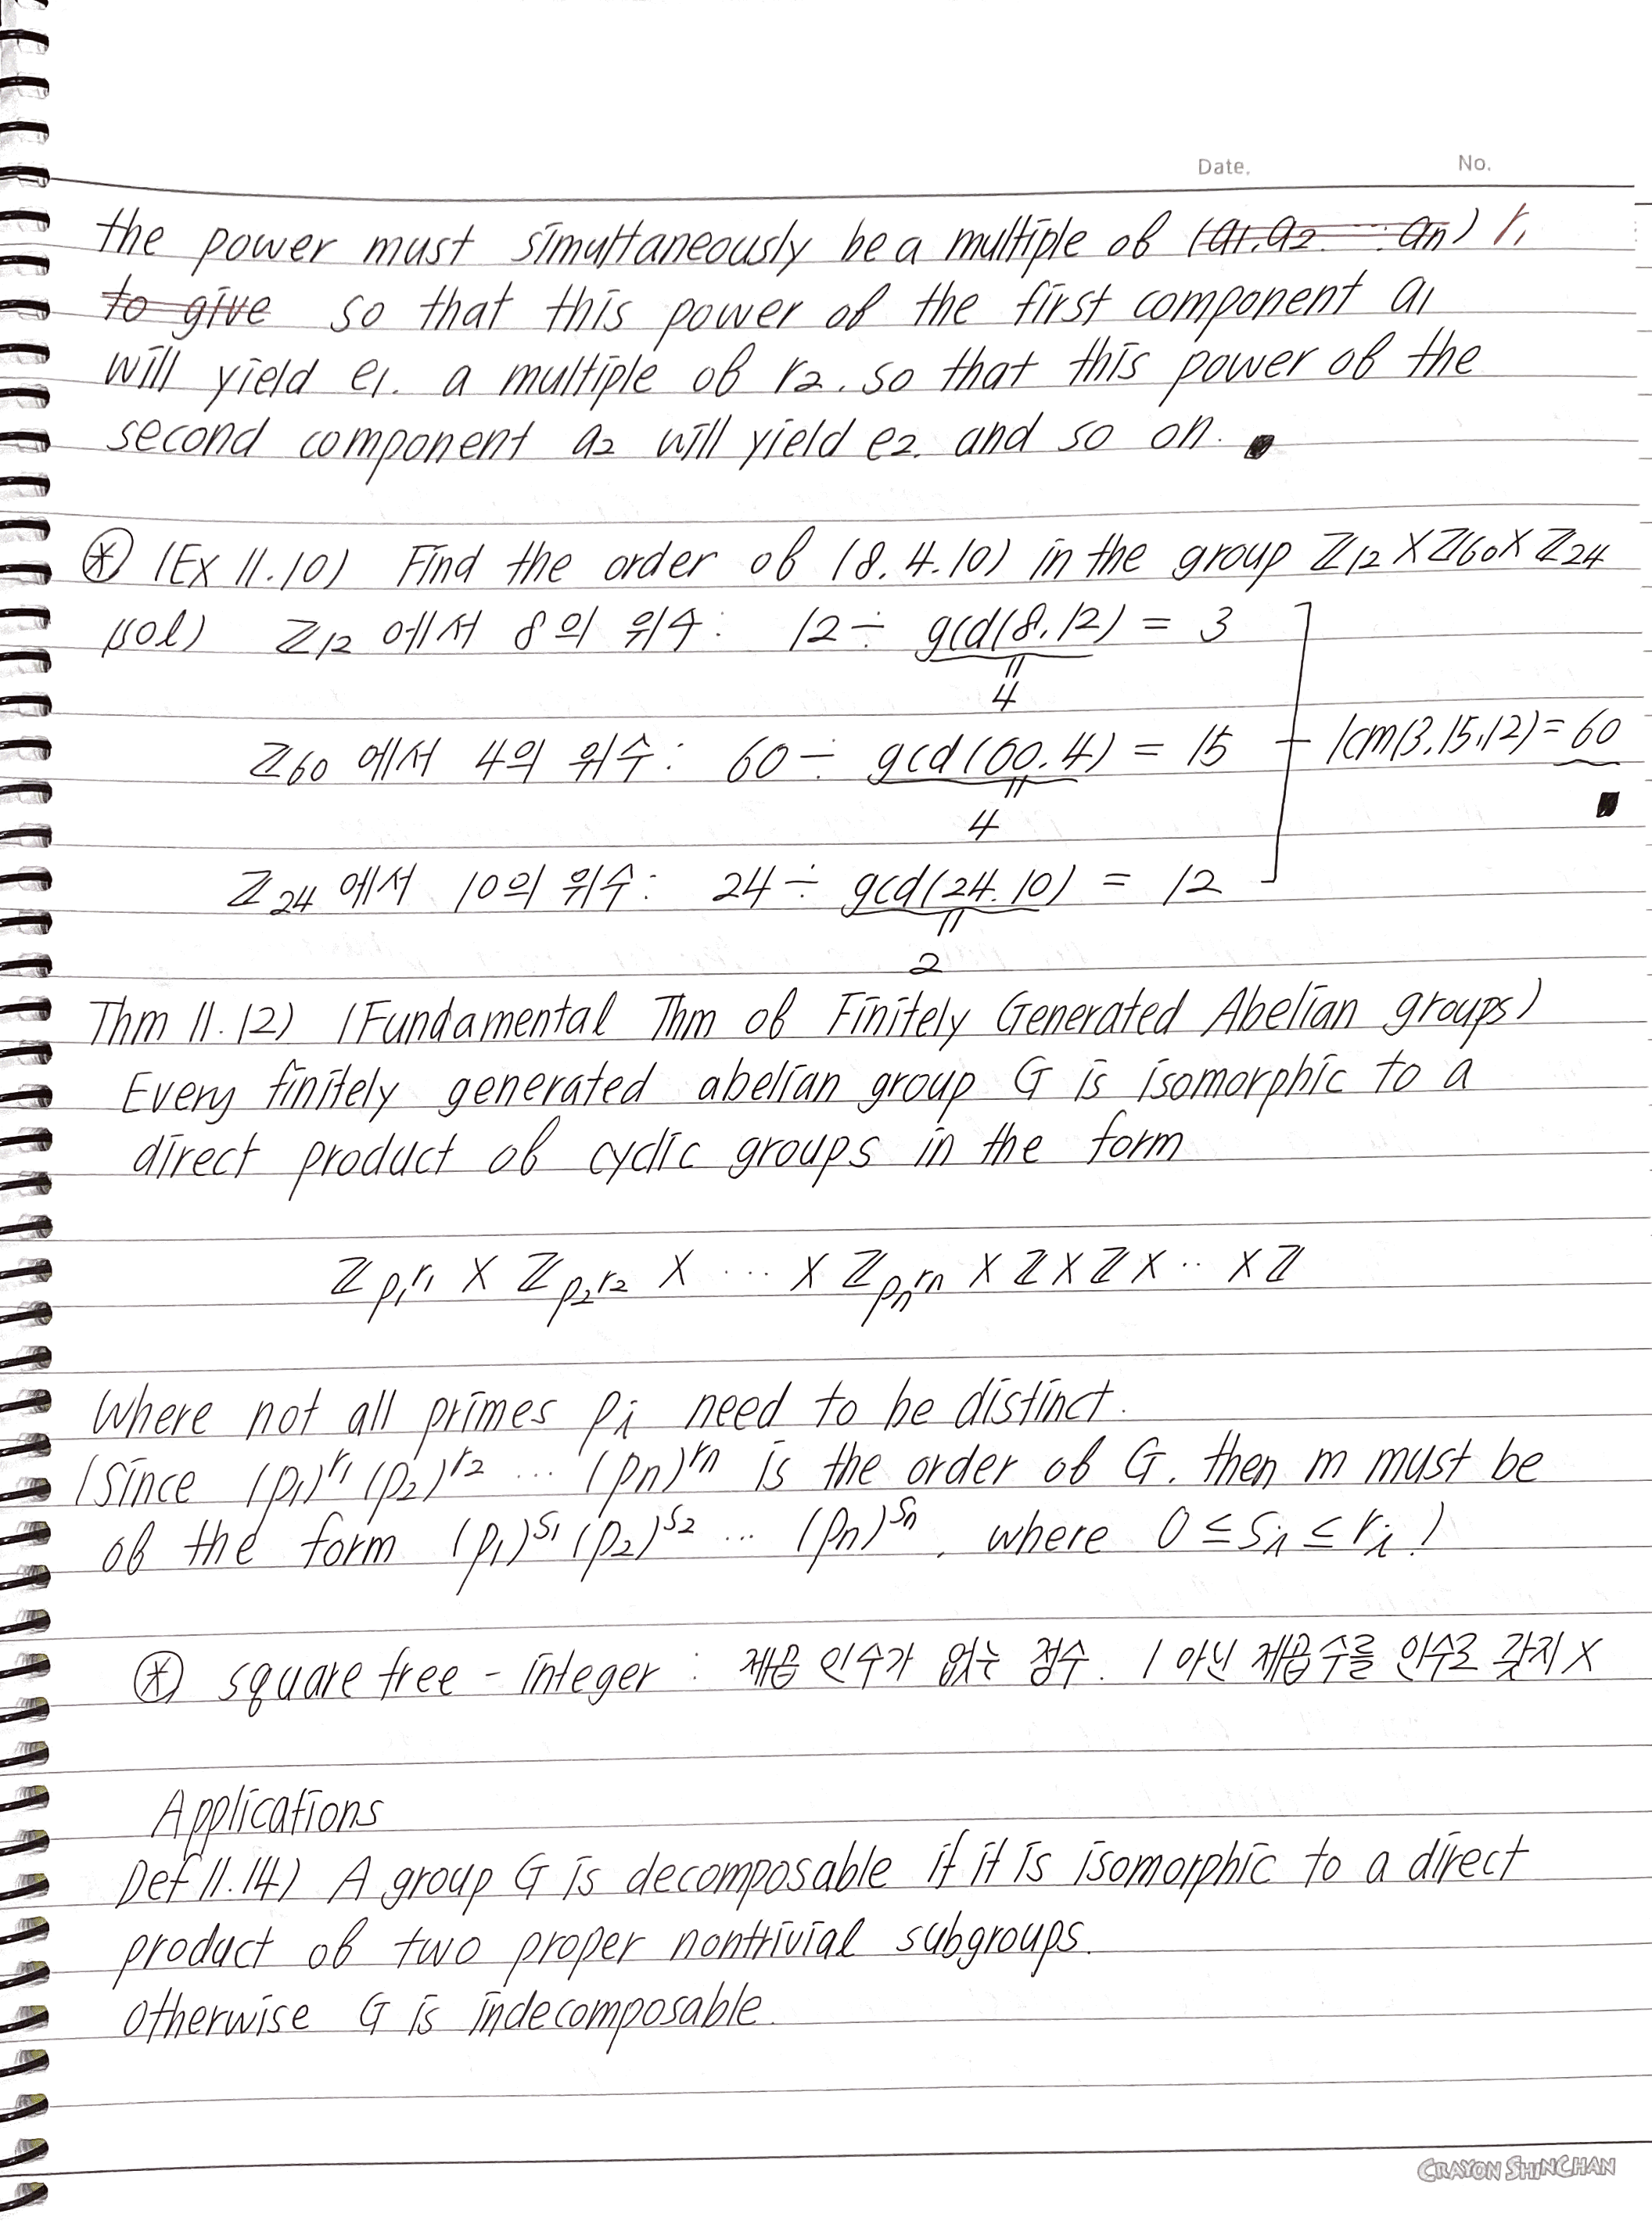 Date. No.
the power must simultaneously be a multiple of (a1.a2. ... an) r1
to give so that this power of the first component a1
will yield e1. a multiple of r2. so that this power of the
second component a2 will yield e2. and so on. ■
⊛ (Ex 11.10) Find the order of (8.4.10) in the group ℤ12 × ℤ60 × ℤ24
(sol) ℤ12 에서 8의 위수: 12 ÷ gcd(8.12) = 3
4
ℤ60 에서 4의 위수: 60 ÷ gcd(60.4) = 15 lcm(3.15.12) = 60
4 ■
ℤ24 에서 10의 위수: 24 ÷ gcd(24.10) = 12
2
Thm 11.12) (Fundamental Thm of Finitely Generated Abelian groups)
Every finitely generated abelian group G is isomorphic to a
direct product of cyclic groups in the form
ℤp1^r1 × ℤp2^r2 × ... × ℤpn^rn × ℤ × ℤ × .. × ℤ
Where not all primes pi need to be distinct.
(Since (p1)^r1 (p2)^r2 ... (pn)^rn is the order of G. then m must be
of the form (p1)^s1 (p2)^s2 ... (pn)^sn, where 0 ≤ si ≤ ri.)
⊛ square free - integer : 제곱 인수가 없는 정수. 1 아닌 제곱수를 인수로 갖지 X
Applications
Def 11.14) A group G is decomposable if it is isomorphic to a direct
product of two proper nontrivial subgroups.
otherwise G is indecomposable.
CRAYON SHINCHAN